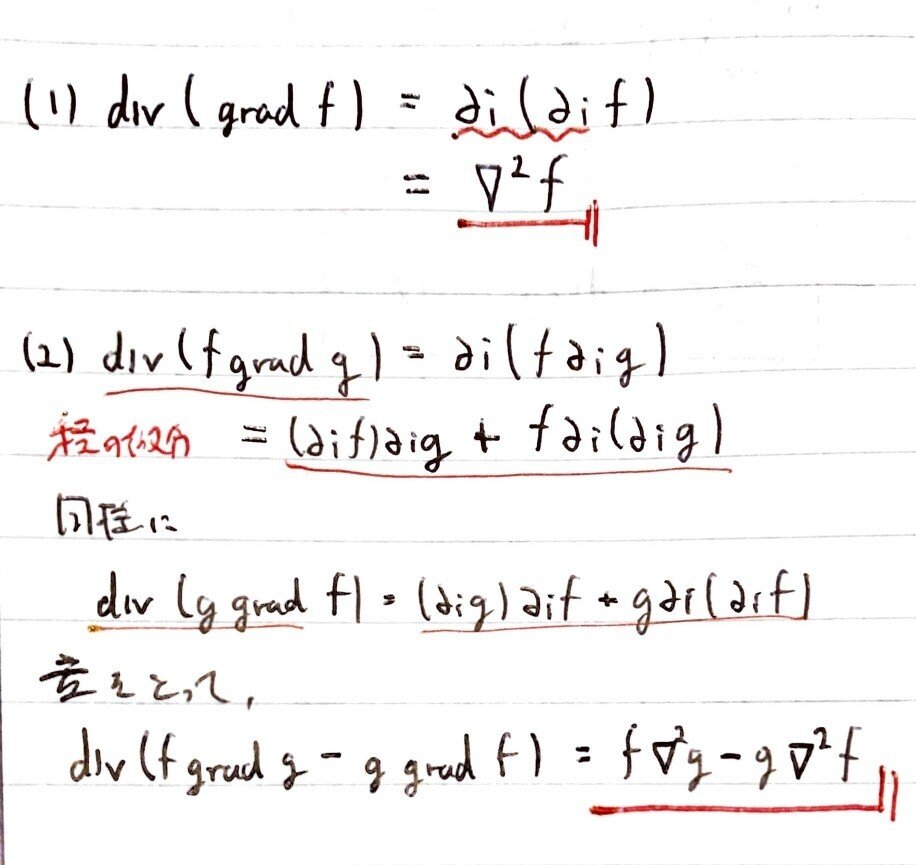 (1) div ( grad f ) = ∂i(∂i f)
= ∇²f
(2) div (f grad g) = ∂i(f ∂i g)
積の微分 = (∂i f)∂i g + f∂i(∂i g)
同様に
div (g grad f) = (∂i g)∂i f + g∂i(∂i f)
差をとって,
div (f grad g - g grad f) = f∇²g - g∇²f